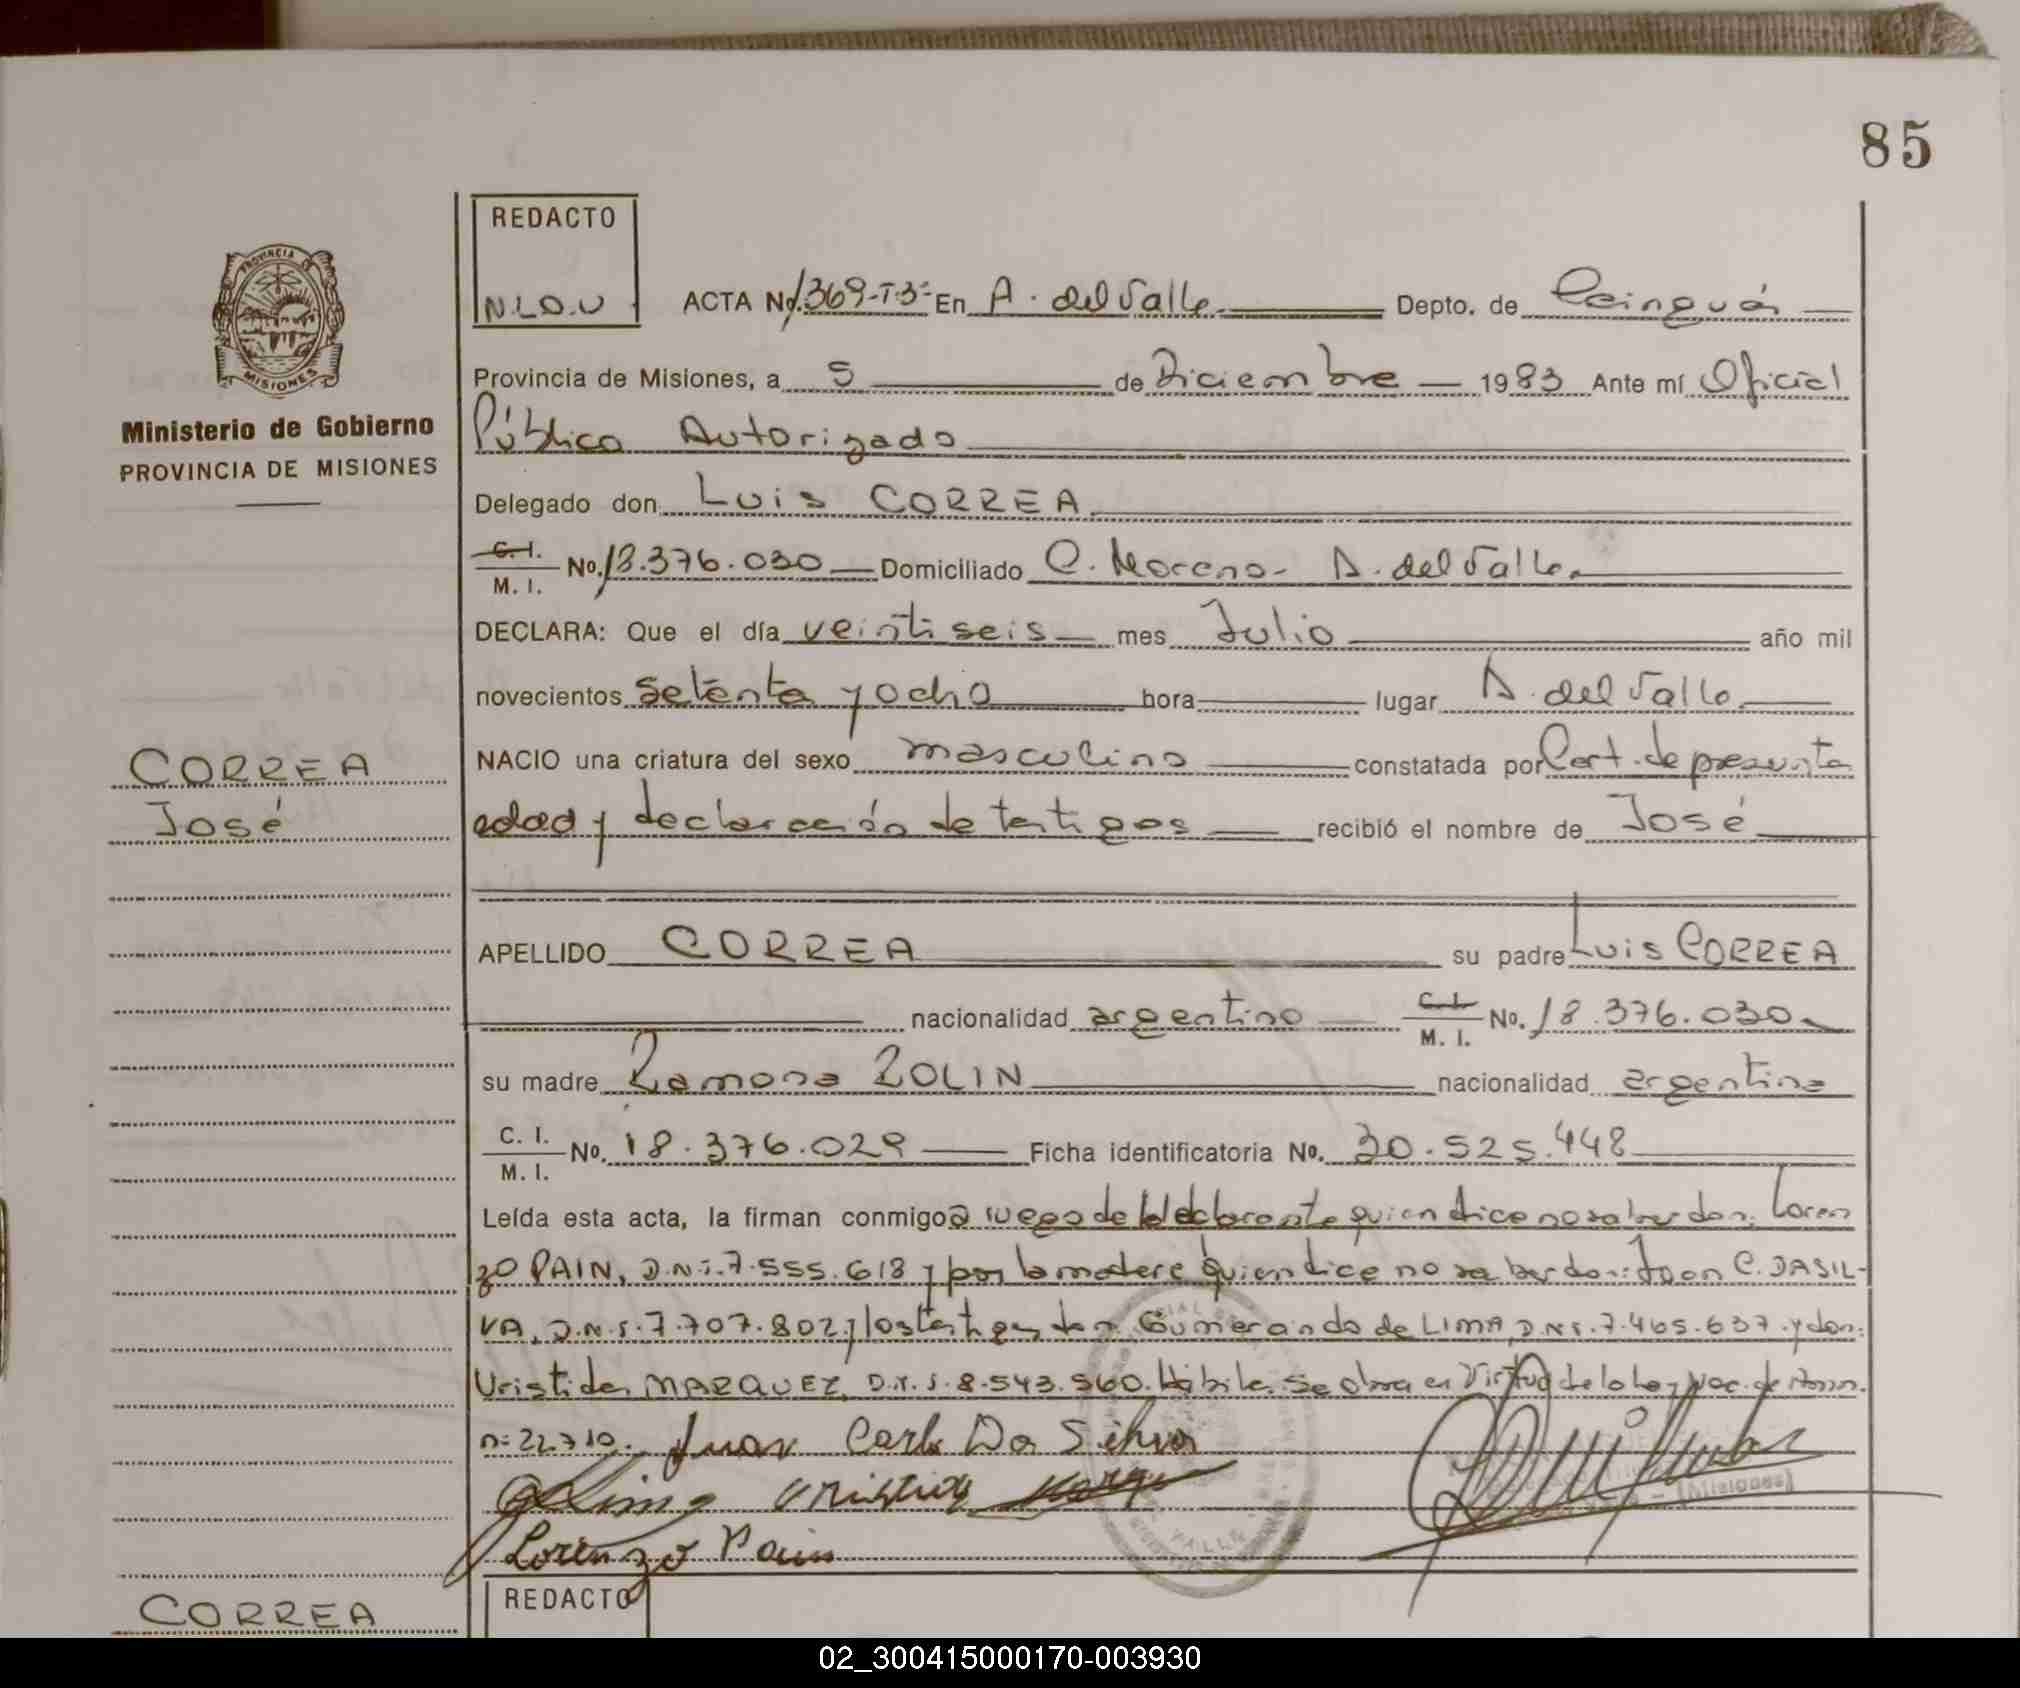 85
REDACTO
N.L.D.U
ACTA No 369-T3- En A. del Valle Depto. de Cainguás
PROVINCIA DE
MISIONES
Ministerio de Gobierno
PROVINCIA DE MISIONES
Provincia de Misiones, a 5 de Diciembre 1983 Ante mí Oficial
Público Autorizado
Delegado don Luis CORREA
C. I. M. I. No. 18.376.030 Domiciliado C. Moreno - A. del Valle
DECLARA: Que el día veintiseis mes Julio año mil
novecientos setenta y ocho hora lugar A. del Valle
CORREA
José
NACIO una criatura del sexo masculino constatada por Cert. de presunta
edad y declaración de testigos recibió el nombre de José
APELLIDO CORREA su padre Luis CORREA
nacionalidad argentino C. I. M. I. No. 18.376.030
su madre Ramona ZOLIN nacionalidad argentina
C. I. M. I. No. 18.376.029 Ficha identificatoria No. 30.525.448
Leída esta acta, la firman conmigo a ruego del declarante quien dice no saber don Loren
zo PAIN, D.N.I. 7.555.618 y por la madre quien dice no saber don Juan C. DASIL-
VA, D.N.I. 7.707.802 y los testigos don Gumerando de LIMA, D.N.I. 7.465.637 y don
Uristides MARQUEZ, D.N.I. 8.543.560. Hábiles. Se obra en Virtud de la Ley Nac. de
n= 22.710. Juan Carlo Da Silva
Lima
Lorenzo Pain
(Misiones)
REDACTO
CORREA
02_300415000170-003930